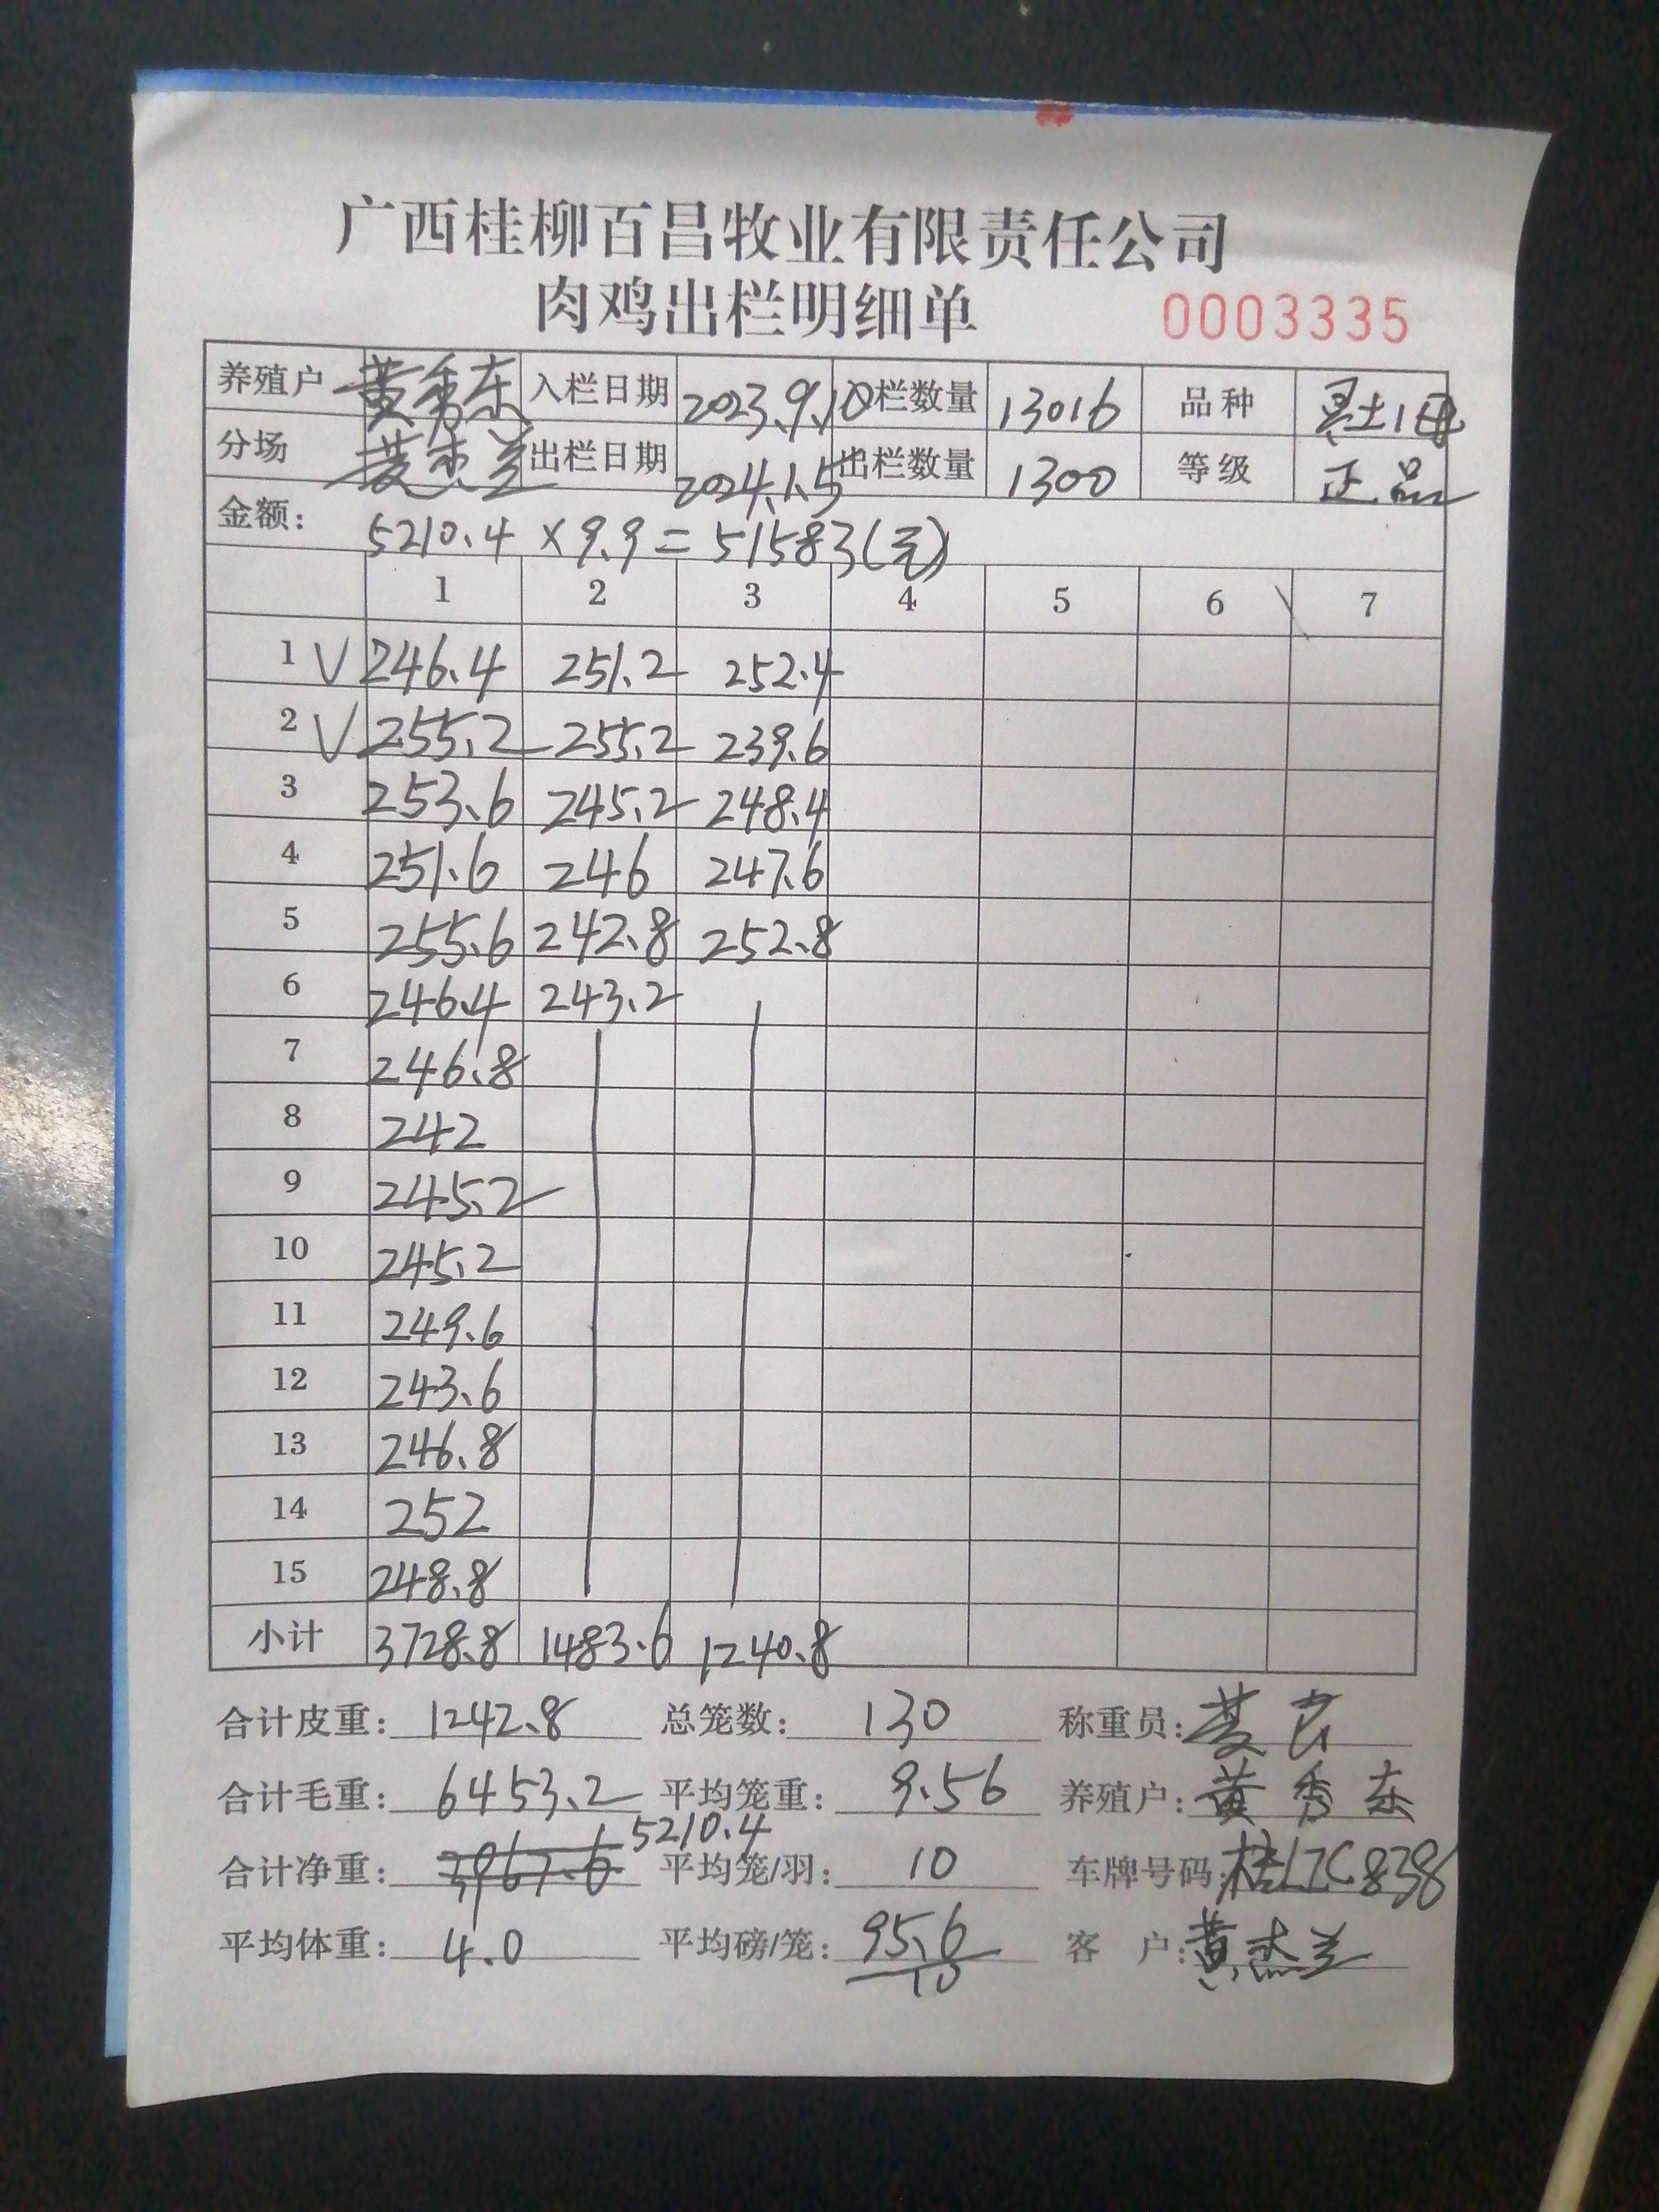 广西桂柳百昌牧业有限责任公司
肉鸡出栏明细单 0003335
养殖户 黄秀东 入栏日期 2023.9.10 栏数量 13016 品种 土1
分场 黄杰兰 出栏日期 2024.1.5 出栏数量 1300 等级 正品
金额: 5210.4 × 9.9 = 51583(元)
1 2 3 4 5 6 7
1 V 246.4 251.2 252.4
2 V 255.2 255.2 239.6
3 253.6 245.2 248.4
4 251.6 246 247.6
5 255.6 242.8 252.8
6 246.4 243.2
7 246.8
8 242
9 245.2
10 245.2
11 249.6
12 243.6
13 246.8
14 252
15 248.8
小计 3728.8 1483.6 1240.8
合计皮重: 1242.8 总笼数: 130 称重员:
合计毛重: 6453.2 平均笼重: 9.56 养殖户: 黄秀东
合计净重: 3967.6 5210.4 平均笼/羽: 10 车牌号码: 桂LZC838
平均体重: 4.0 平均磅/笼: 95.6/10 客 户: 黄杰兰